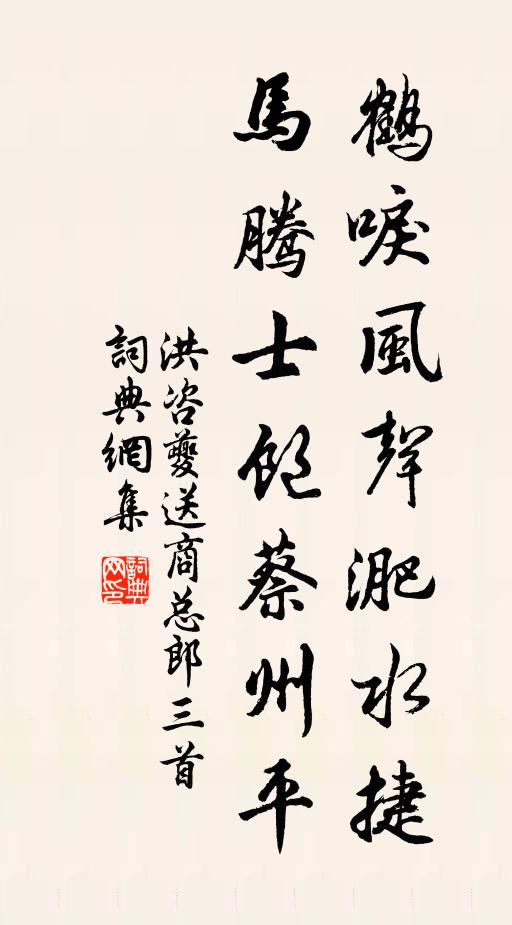 鶴唳風聲淝水捷
馬騰士飽蔡州平
洪咨夔送商总郎三首
詞典網集
詞典网印